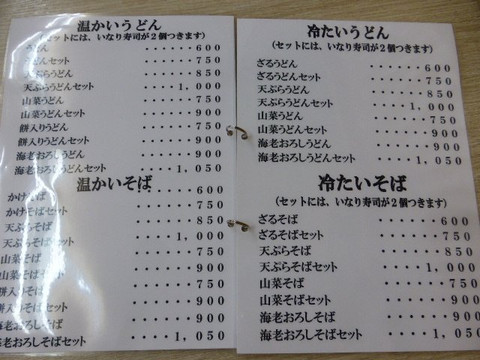 温かいうどん
（セットには、いなり寿司が２個つきます）
うどん ・・・・・・６００
うどんセット ・・・・・・７５０
天ぷらうどん ・・・・・・８５０
天ぷらうどんセット ・・・・１，０００
山菜うどん ・・・・・・７５０
山菜うどんセット ・・・・・・９００
餅入りうどん ・・・・・・７５０
餅入りうどんセット ・・・・・・９００
海老おろしうどん ・・・・・・９００
海老おろしうどんセット ・・・・１，０５０
温かいそば
かけそば ・・・・・・６００
かけそばセット ・・・・・・７５０
天ぷらそば ・・・・・・８５０
天ぷらそばセット ・・・・１，０００
山菜そば ・・・・・・７５０
山菜そばセット ・・・・・・９００
餅入りそば ・・・・・・７５０
餅入りそばセット ・・・・・・９００
海老おろしそば ・・・・・・９００
海老おろしそばセット ・・・・１，０５０
冷たいうどん
（セットには、いなり寿司が２個つきます）
ざるうどん ・・・・・・６００
ざるうどんセット ・・・・・・７５０
天ぷらうどん ・・・・・・８５０
天ぷらうどんセット ・・・・１，０００
山菜うどん ・・・・・・７５０
山菜うどんセット ・・・・・・９００
海老おろしうどん ・・・・・・９００
海老おろしうどんセット ・・・・１，０５０
冷たいそば
（セットには、いなり寿司が２個つきます）
ざるそば ・・・・・・６００
ざるそばセット ・・・・・・７５０
天ぷらそば ・・・・・・８５０
天ぷらそばセット ・・・・１，０００
山菜そば ・・・・・・７５０
山菜そばセット ・・・・・・９００
海老おろしそば ・・・・・・９００
海老おろしそばセット ・・・・１，０５０